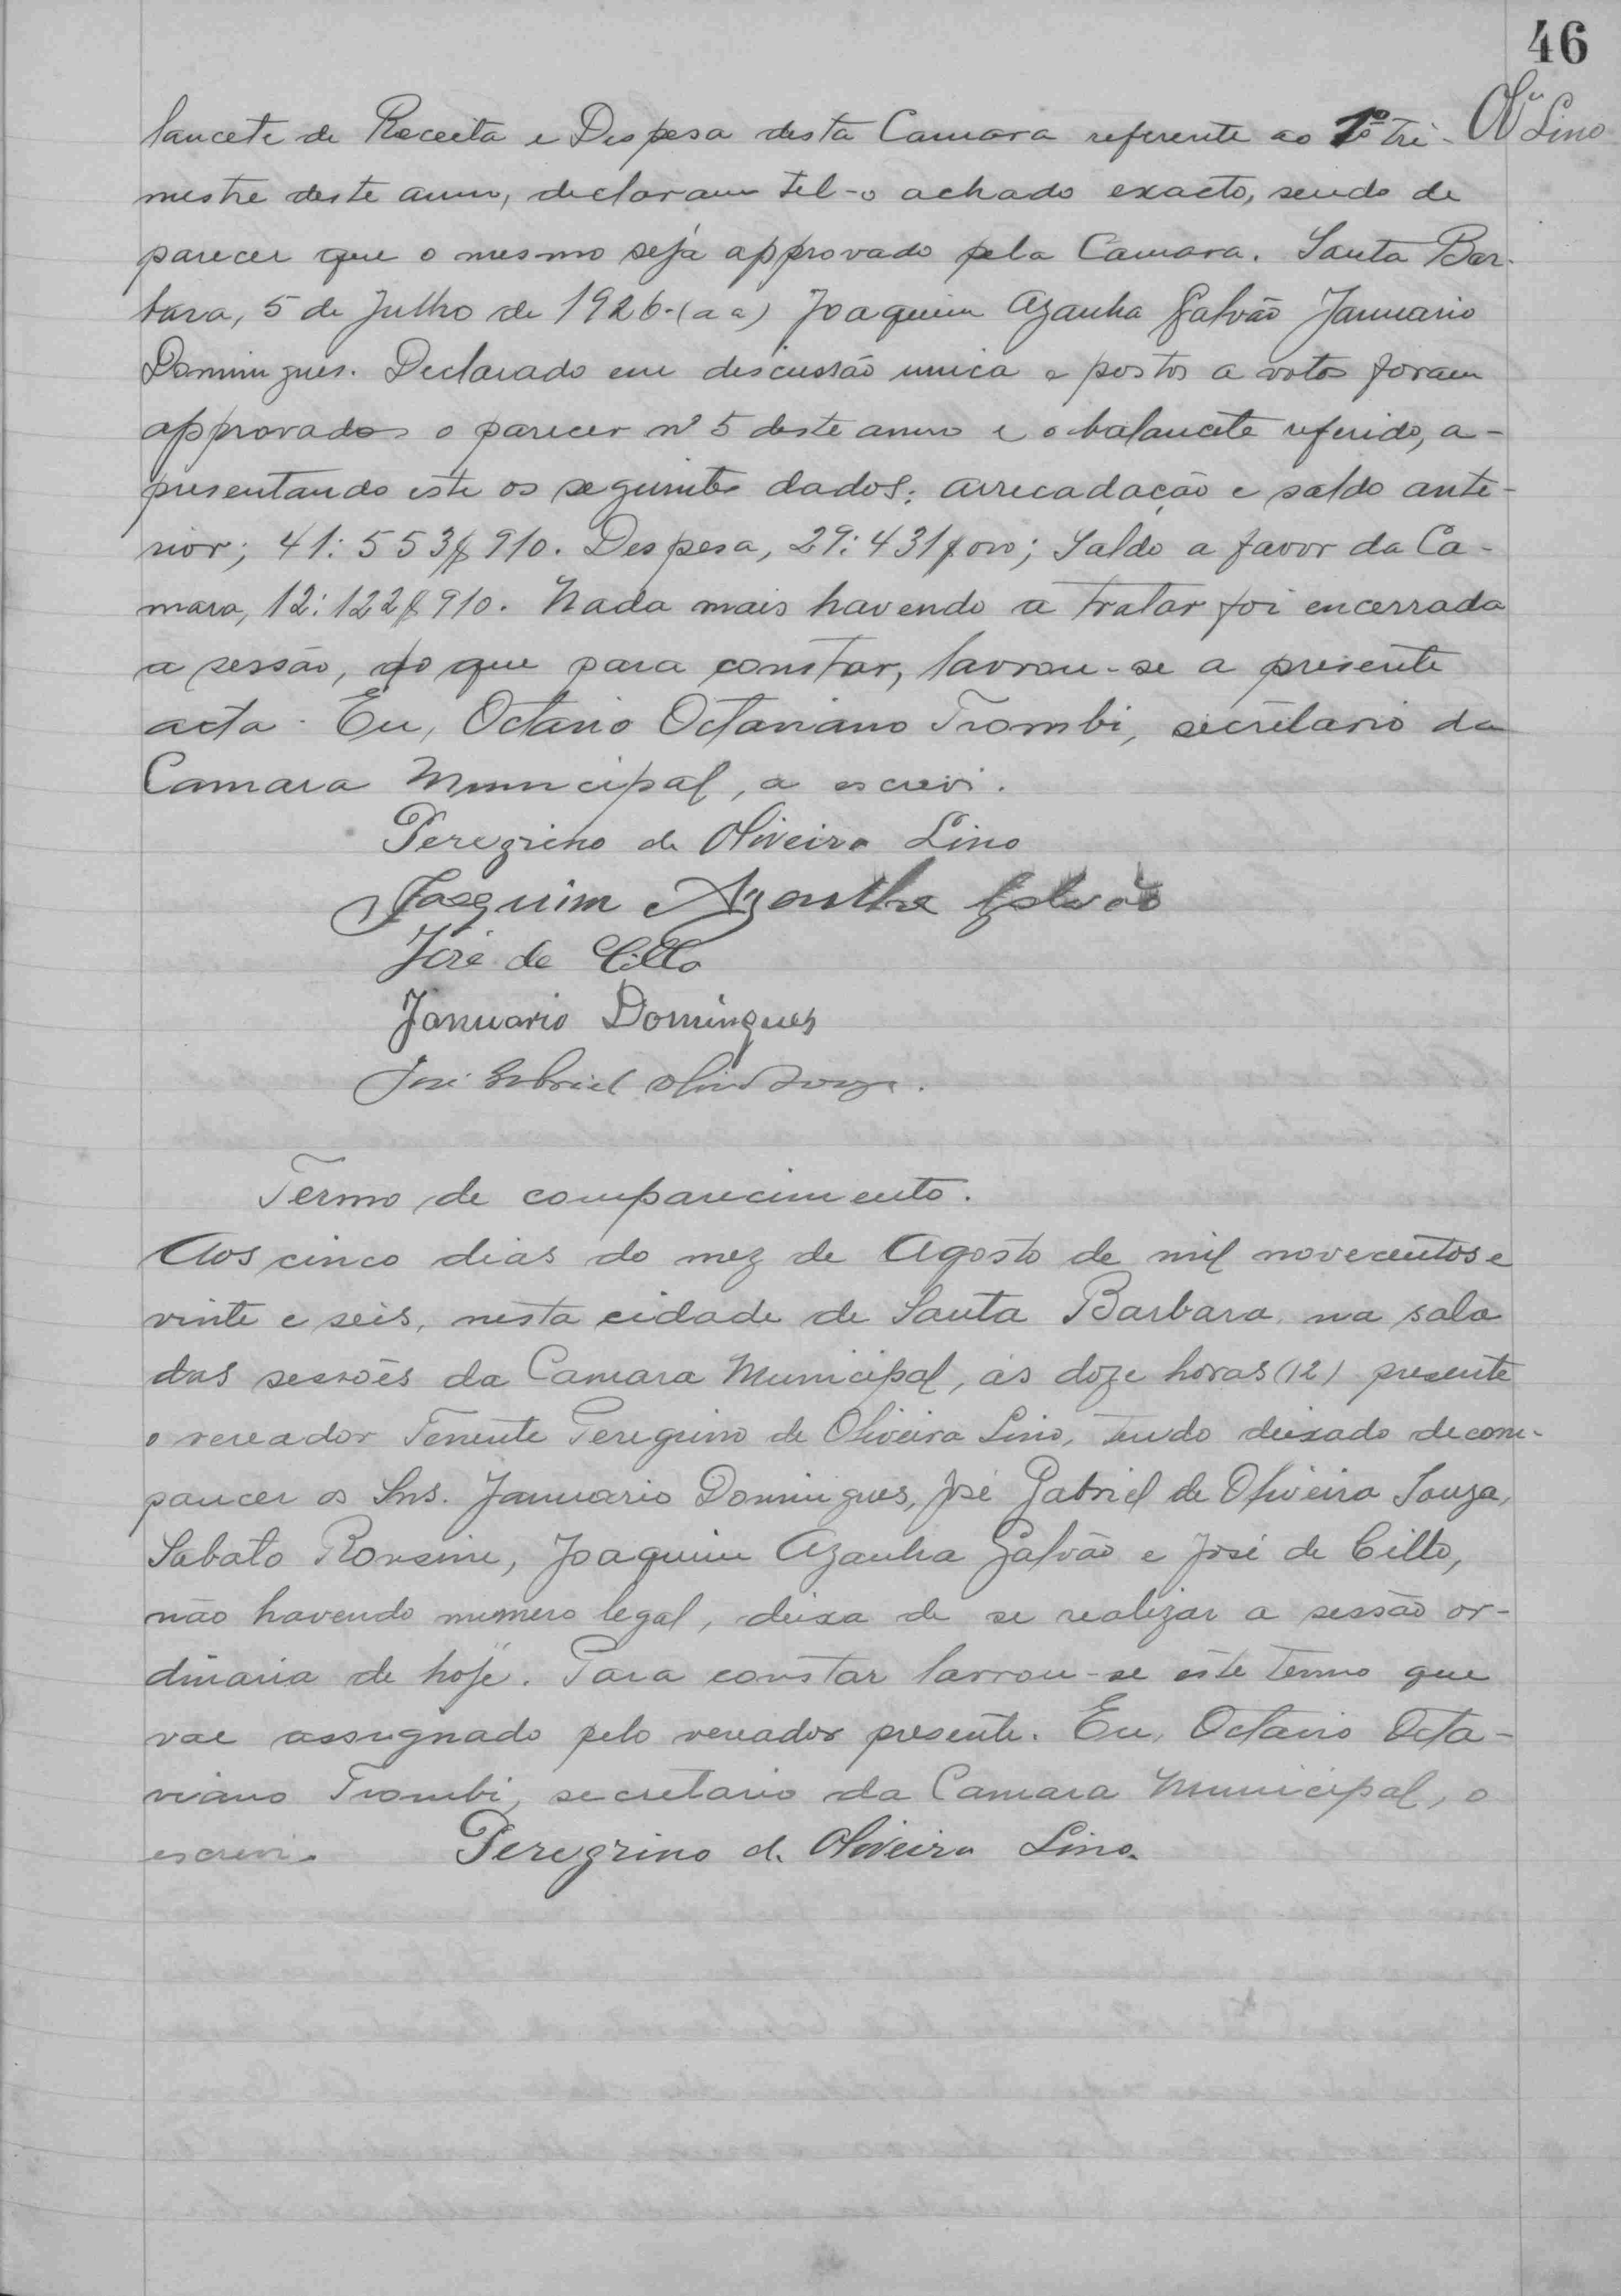 46
Olⁱ Lino
lancete de Receita e Despesa desta Camara referente ao 1º tri-
mestre deste anno, declaram tel-o achado exacto, sendo de
parecer que o mesmo seja approvado pela Camara. Santa Bar-
bara, 5 de Julho de 1926. (a a) Joaquim Azanha Galvão Januario
Domingues. Declarado em discussão unica e postos a votos foram
approvados o parecer nº 5 deste anno e o balancete referido, a-
presentando este os seguintes dados: arrecadação e saldo ante-
rior; 41:553$910. Despesa, 29:431$000; Saldo a favor da Ca-
mara, 12:122$910. Nada mais havendo a tratar foi encerrada
a sessão, do que para constar, lavrou-se a presente
acta. Eu, Octavio Octaviano Trombi, secretario da
Camara Municipal, a escrevi.
Peregrino de Oliveira Lino
Joaquim Azanha Galvão
José de Cillo
Januario Domingues
José Gabriel Olivª Souza.
Termo de comparecimento.
Aos cinco dias do mez de Agosto de mil novecentos e
vinte e seis, nesta cidade de Santa Barbara, na sala
das sessões da Camara Municipal, ás doze horas (12) presente
o vereador Tenente Peregrino de Oliveira Lino, tendo deixado de com-
parecer os Snrs. Januario Domingues, José Gabriel de Oliveira Souza,
Sabato Ronsini, Joaquim Azanha Galvão e José de Cillo,
não havendo numero legal, deixa de se realizar a sessão or-
dinaria de hoje. Para constar lavrou-se este termo que
vae assignado pelo vereador presente. Eu, Octavio Octa-
viano Trombi, secretario da Camara Municipal, o
escrevi. Peregrino d. Oliveira Lino.